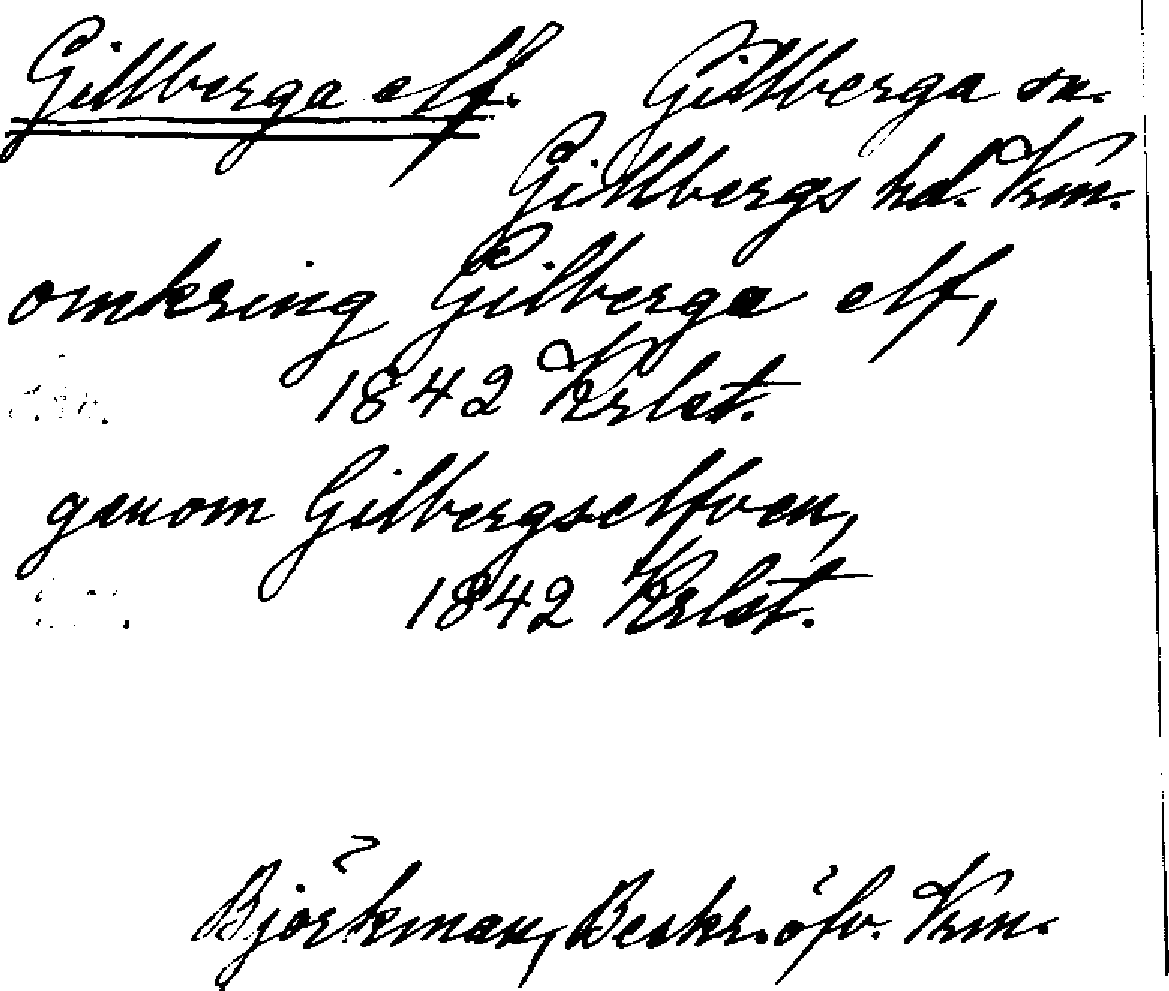 Gillberga elf. Gillberga sn.
Gillbergs hd. Vrm.
omkring Gilberga elf,
1842 Krlst.
genom Gilbergselfven,
1842 Krlst.
Björkman, Beskr. öfv. Vrm.